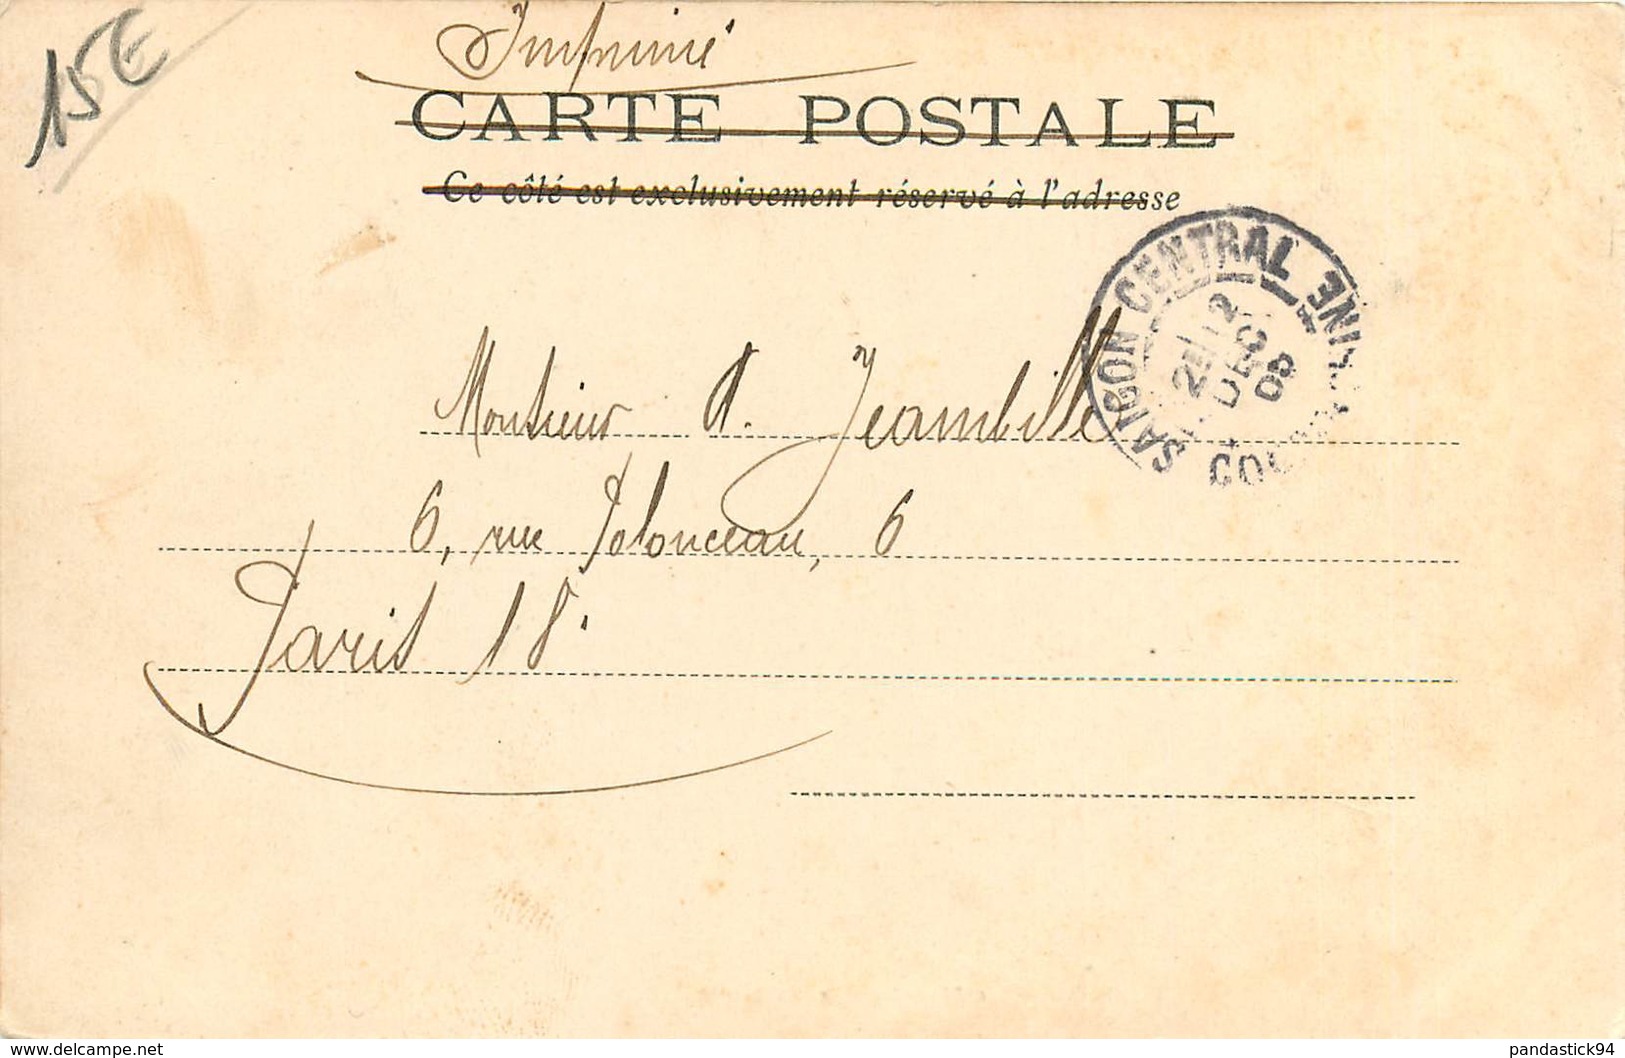 15€
Imprimé
CARTE POSTALE
Ce côté est exclusivement réservé à l'adresse
SAIGON CENTRAL
DEC
08
Monsieur A. Jeambille
6, rue Polonceau, 6
Paris 18.
www.delcampe.net
pandastick94